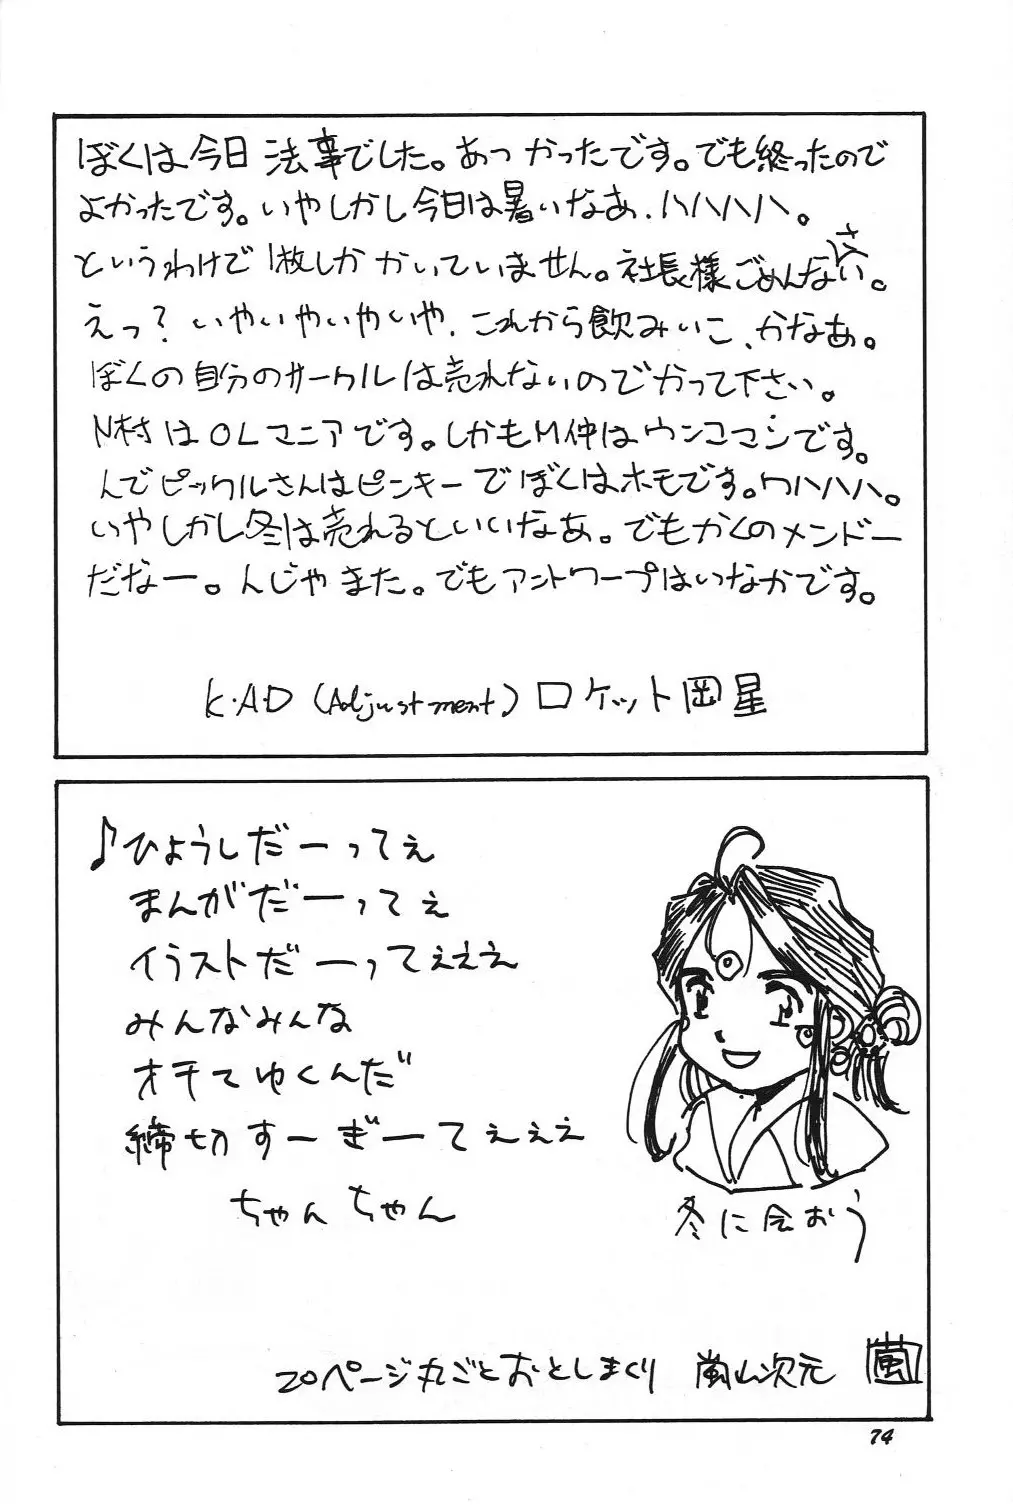 ぼくは今日法事でした。あつかったです。でも終ったので
よかったです。いやしかし今日は暑いなあ、ハハハハ。
というわけで1枚しかかいていません。社長様ごめんなさい。
えっ？いやいやいやいや、これから飲みいこ、かなあ。
ぼくの自分のサークルは売れないのでかって下さい。
N村はOLマニアです。しかもM仲はウンコマシです。
んでピックルさんはピンキーでぼくはホモです。ワハハハ。
いやしかし冬は売れるといいなあ。でもかくのメンドー
だなー。んじゃまた。でもアントワープはいなかです。
K・A・D（Adjustment）ロケット岡星
♪ひょうしだーってぇ
まんがだーってぇ
イラストだーってぇぇぇ
みんなみんな
オチてゆくんだ
締切すーぎーてぇぇぇ
ちゃんちゃん
冬に会おう
20ページ丸ごとおとしまくり 嵐山次元 嵐
74